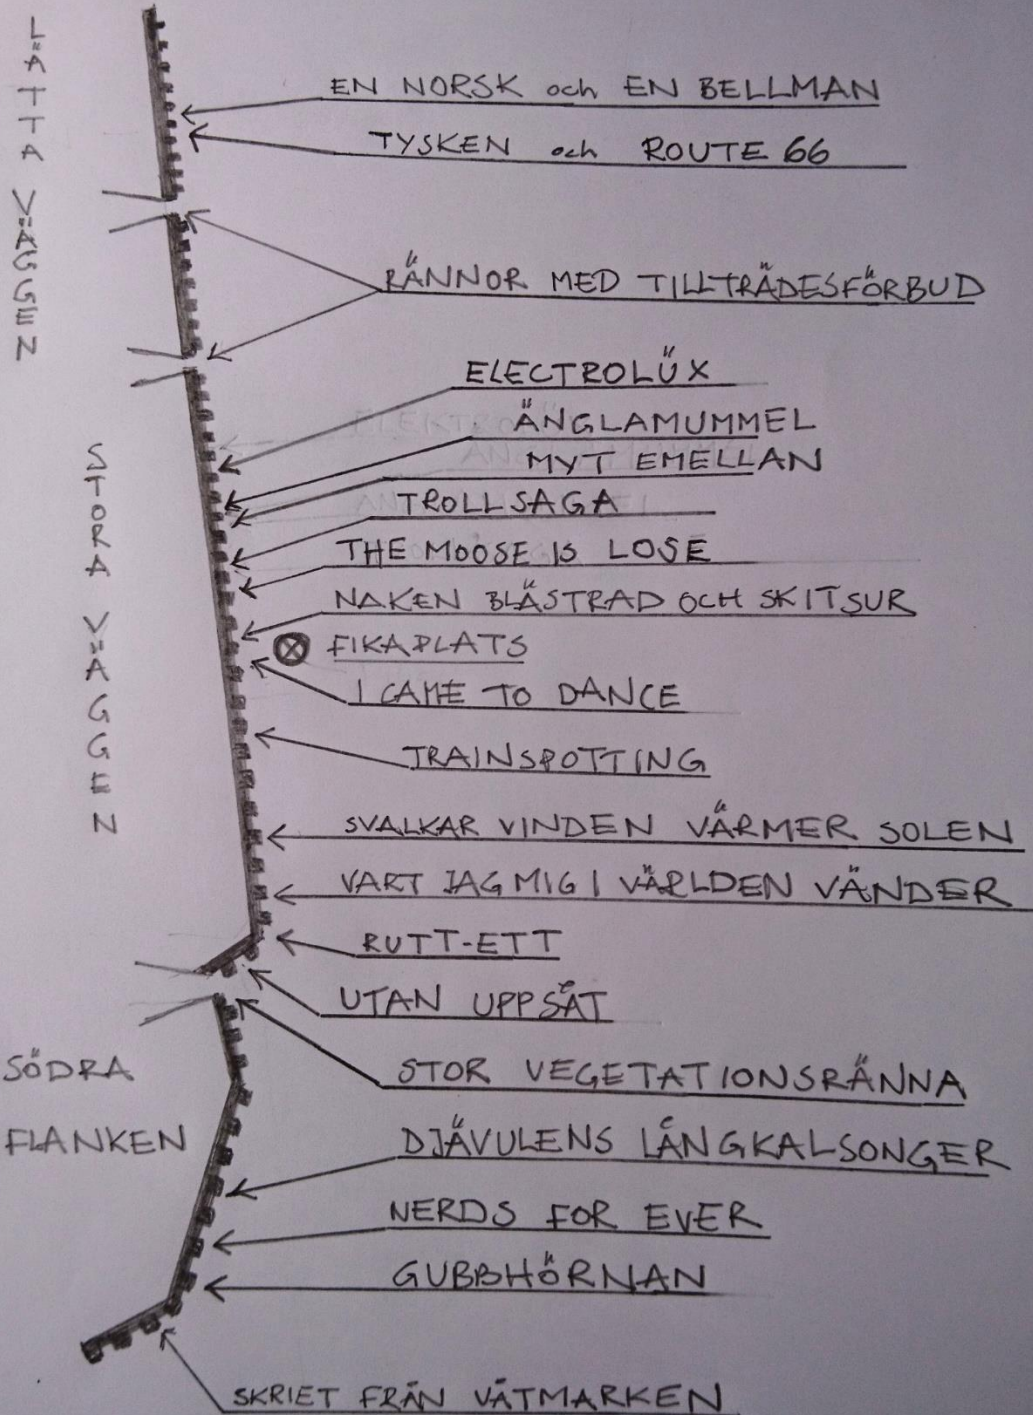 LÄTTA VÄGGEN
EN NORSK och EN BELLMAN
TYSKEN och ROUTE 66
RÄNNOR MED TILLTRÄDESFÖRBUD
STORA VÄGGEN
ELECTROLÜX
ÄNGLAMUMMEL
MYT EMELLAN
TROLLSAGA
THE MOOSE IS LOSE
NAKEN BLÄSTRAD OCH SKITSUR
FIKAPLATS
I CAME TO DANCE
TRAINSPOTTING
SVALKAR VINDEN VÄRMER SOLEN
VART JAG MIG I VÄRLDEN VÄNDER
RUTT-ETT
UTAN UPPSÅT
SÖDRA
FLANKEN
STOR VEGETATIONSRÄNNA
DJÄVULENS LÅNGKALSONGER
NERDS FOR EVER
GUBBHÖRNAN
SKRIET FRÅN VÅTMARKEN